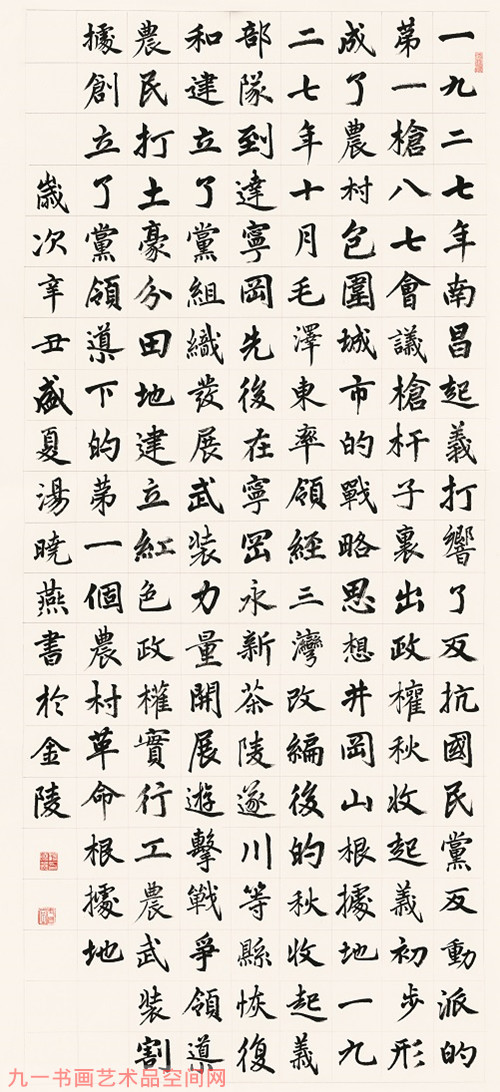 一九二七年南昌起義打響了反抗國民黨反動派的
第一槍八七會議槍杆子裏出政權秋收起義初步形
成了農村包圍城市的戰略思想井岡山根據地一九
二七年十月毛澤東率領經三灣改編後的秋收起義
部隊到達寧岡先後在寧岡永新茶陵遂川等縣恢復
和建立了黨組織發展武装力量開展遊擊戰爭領導
農民打土豪分田地建立紅色政權實行工農武装割
據創立了黨領導下的第一個農村革命根據地
歲次辛丑盛夏湯曉燕書於金陵
九一书画艺术品空间网